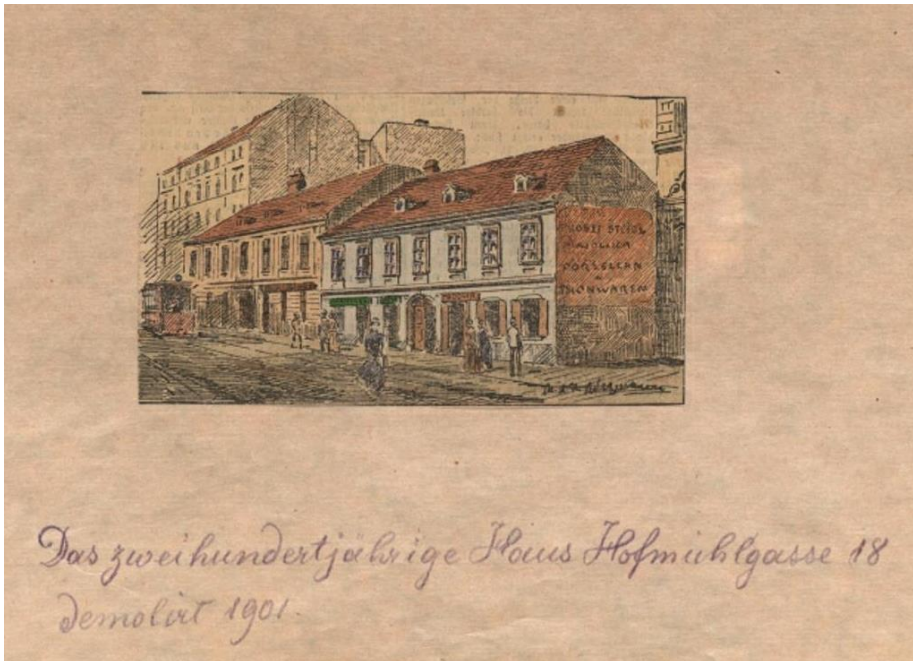 PORZELLAN
THONWAREN
Das zweihundertjährige Haus Hofmühlgasse 18
demolirt 1901.